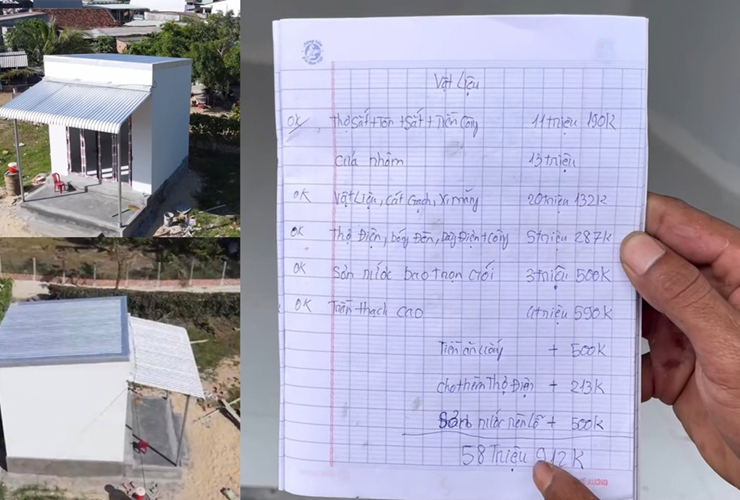 Vật Liệu
OK Thợ Sắt + Tôn + Sắt + Tiền Công 11 triệu 190K
Cửa nhôm 13 triệu
OK Vật Liệu, Cát Gạch, Xi măng 20 triệu 132K
OK Thợ Điện, bóng Đèn, Dây Điện + Công 5 triệu 287K
OK Sơn nước bao trọn gói 3 triệu 500K
OK Trần thạch cao 4 triệu 590K
Tiền ăn uống + 500K
cho thêm Thợ Điện + 213K
Sơn nước nền lỗ + 500K
58 Triệu 912K